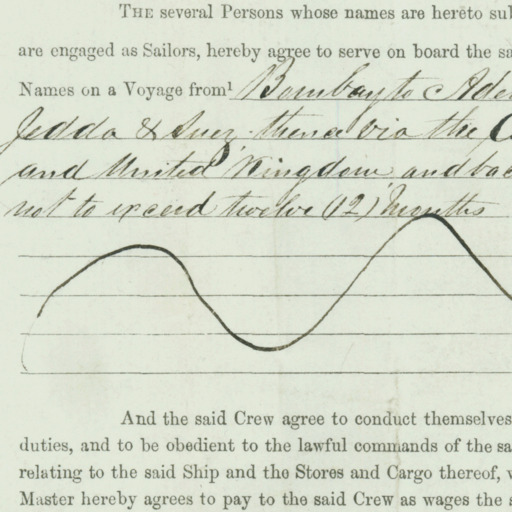 THE several Persons whose names are hereto sub
are engaged as Sailors, hereby agree to serve on board the sa
Names on a Voyage from¹ Bombay to Aden
Jedda & Suez thence via the C
and United Kingdom and bac
not to exceed twelve (12) Months
And the said Crew agree to conduct themselves
duties, and to be obedient to the lawful commands of the sa
relating to the said Ship and the Stores and Cargo thereof, w
Master hereby agrees to pay to the said Crew as wages the s